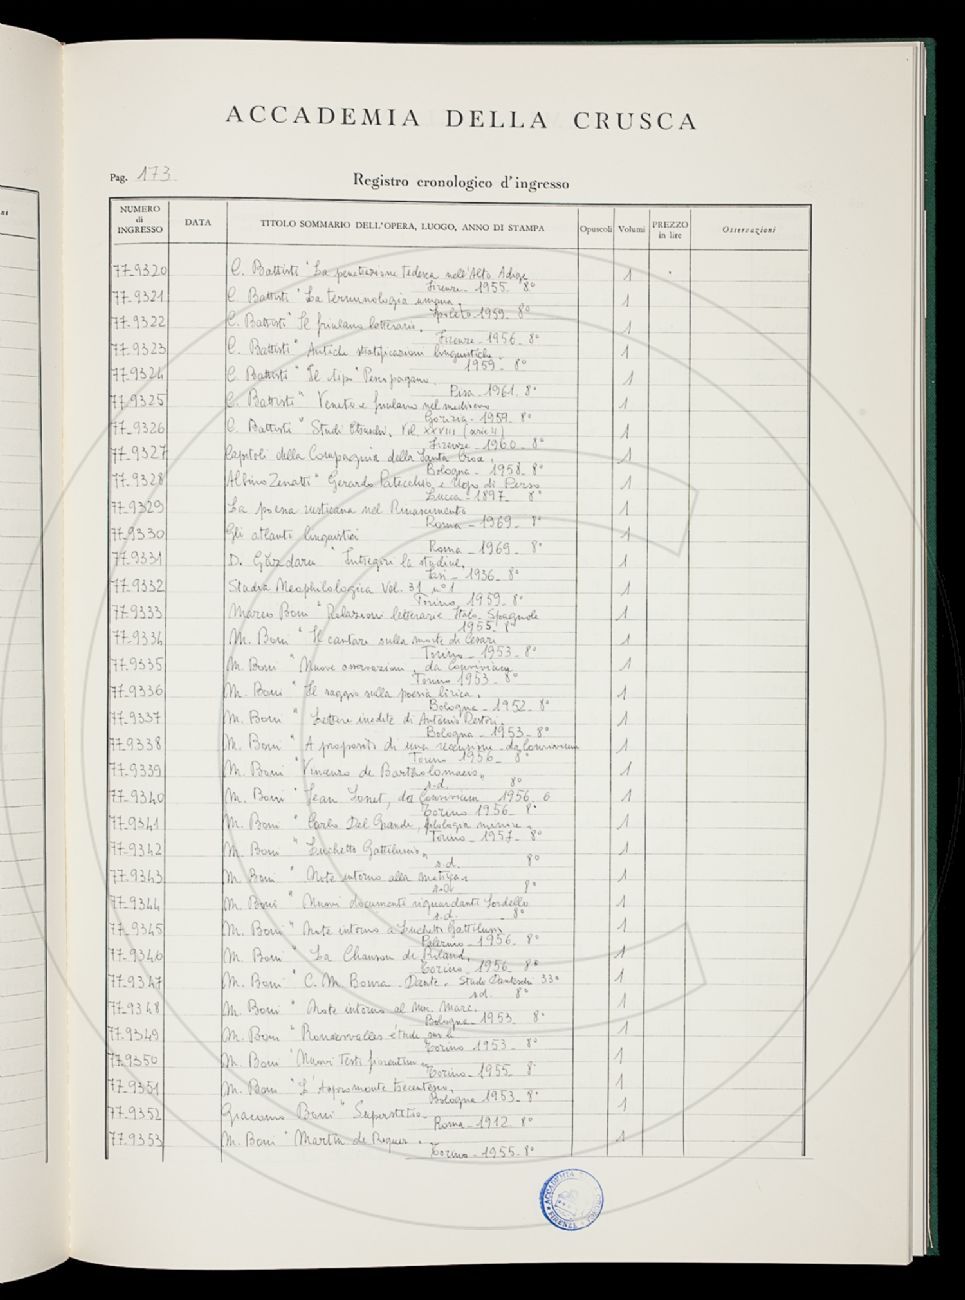 ACCADEMIA DELLA CRUSCA
Pag. 173
Registro cronologico d'ingresso
NUMERO di INGRESSO DATA TITOLO SOMMARIO DELL'OPERA, LUOGO, ANNO DI STAMPA Opuscoli Volumi PREZZO in lire Osservazioni
77-9320 C. Battisti "La penetrazione tedesca nell'Alto Adige 1
Firenze - 1955 - 8°
77-9321 C. Battisti "La terminologia umana, 1
Spoleto - 1959 - 8°
77-9322 C. Battisti "Il friulano letterario. 1
Firenze - 1956 - 8°
77-9323 C. Battisti "Antiche stratificazioni linguistiche. 1
1959 - 8°
77-9324 C. Battisti "Il 1
Pisa - 1961 - 8°
77-9325 C. Battisti "Veneto e friulano nel medioevo 1
Gorizia - 1959 - 8°
77-9326 C. Battisti "Studi Etruschi, Vol. XXVIII (serie II) 1
Firenze - 1960 - 8°
77-9327 Capitoli della Compagnia della Santa Croce. 1
Bologna - 1958 - 8°
77-9328 Albino Zenatti "Gerardo Patecchio e Ugo di Perso 1
Lucca - 1897 - 8°
77-9329 La poesia rusticana nel Rinascimento 1
Roma - 1969 - 8°
77-9330 Gli atlanti linguistici 1
Roma - 1969 - 8°
77-9331 D. Găzdaru "Întregiri la studiul. 1
Iasi - 1936 - 8°
77-9332 Studia Neophilologica Vol. 31 n° 1 1
Torino, 1959 - 8°
77-9333 Marco Boni "Relazioni letterarie Italo-Spagnole 1
1955 - 8°
77-9334 M. Boni "Il cantare sulla morte di Cesare 1
Torino - 1953 - 8°
77-9335 M. Boni "Nuove osservazioni, da Convivium 1
Torino 1953 - 8°
77-9336 M. Boni "Il saggio sulla poesia lirica. 1
Bologna - 1952 - 8°
77-9337 M. Boni "Lettere inedite di Antonio Restori 1
Bologna - 1953 - 8°
77-9338 M. Boni "A proposito di una recensione - da Convivium 1
Torino 1956 - 8°
77-9339 M. Boni "Vincenzo de Bartholomaeis, 1
s.d. 8°
77-9340 M. Boni "Jean Sonet, da Convivium 1956, 6 1
Torino 1956 - 8°
77-9341 M. Boni "Carlo Del Grande, filologia minore. 1
Torino - 1957 - 8°
77-9342 M. Boni "Luchetto Gattilusio, 1
s.d. 8°
77-9343 M. Boni "Note intorno alla 1
s.d. 8°
77-9344 M. Boni "Nuovi documenti riguardanti Sordello 1
s.d. - 8°
77-9345 M. Boni "Note intorno a Luchetto Gattilusio 1
Palermo - 1956 - 8°
77-9346 M. Boni "La Chanson de Roland, 1
Torino - 1956 - 8°
77-9347 M. Boni "C. M. Bowra - Dante - Studi Danteschi 33° 1
s.d. 8°
77-9348 M. Boni "Note intorno al Ms. Marc. 1
Bologna - 1953 - 8°
77-9349 M. Boni "Roncesvalles étude sur 1
Torino - 1953 - 8°
77-9350 M. Boni "Nuovi Testi fiorentini 1
Torino - 1955 - 8°
77-9351 M. Boni "L'Aspromonte trecentesco, 1
Bologna 1953 - 8°
77-9352 Giacomo Boni "Superstitio 1
Roma - 1912 - 8°
77-9353 M. Boni "Martin de Riquer. 1
Torino - 1955 - 8°
ACCADEMIA
FIRENZE